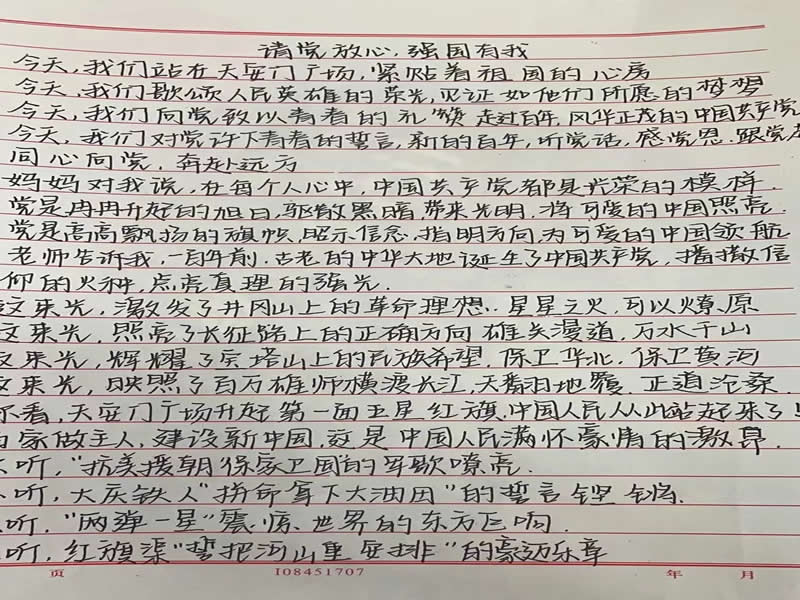 请党放心,强国有我
今天,我们站在天安门广场,紧贴着祖国的心房
今天,我们歌颂人民英雄的荣光,见证如他们所愿的梦想
今天,我们向党致以青春的礼赞 走过百年,风华正茂的中国共产党
今天,我们对党许下青春的誓言,新的百年,听党话,感党恩.跟党
同心向党,奔赴远方
妈妈对我说,在每个人心中,中国共产党都是光荣的模样.
党是冉冉升起的旭日,驱散黑暗,带来光明,将可爱的中国照亮.
党是高高飘扬的旗帜,昭示信念,指明方向,为可爱的中国领航
老师告诉我,一百年前,古老的中华大地诞生了中国共产党,播撒信
仰的火种,点亮真理的强光.
这束光,激发了井冈山上的革命理想..星星之火,可以燎原
这束光,照亮了长征路上的正确方向 雄关漫道,万水千山
这束光,辉耀了宝塔山上的民族希望.保卫华北,保卫黄河
这束光,映照了百万雄师横渡长江,天翻地覆.正道沧桑.
看,天安门广场升起第一面五星红旗,中国人民从此站起来了!
家做主人,建设新中国,这是中国人民满怀豪情的激昂.
听,"抗美援朝保家卫国"的军歌嘹亮.
听,大庆铁人"拼命拿下大油田"的誓言铿锵.
听,"两弹一星"震惊世界的东方巨响.
听,红旗渠"誓把河山重安排"的豪迈乐章
页 I08451707 年 月